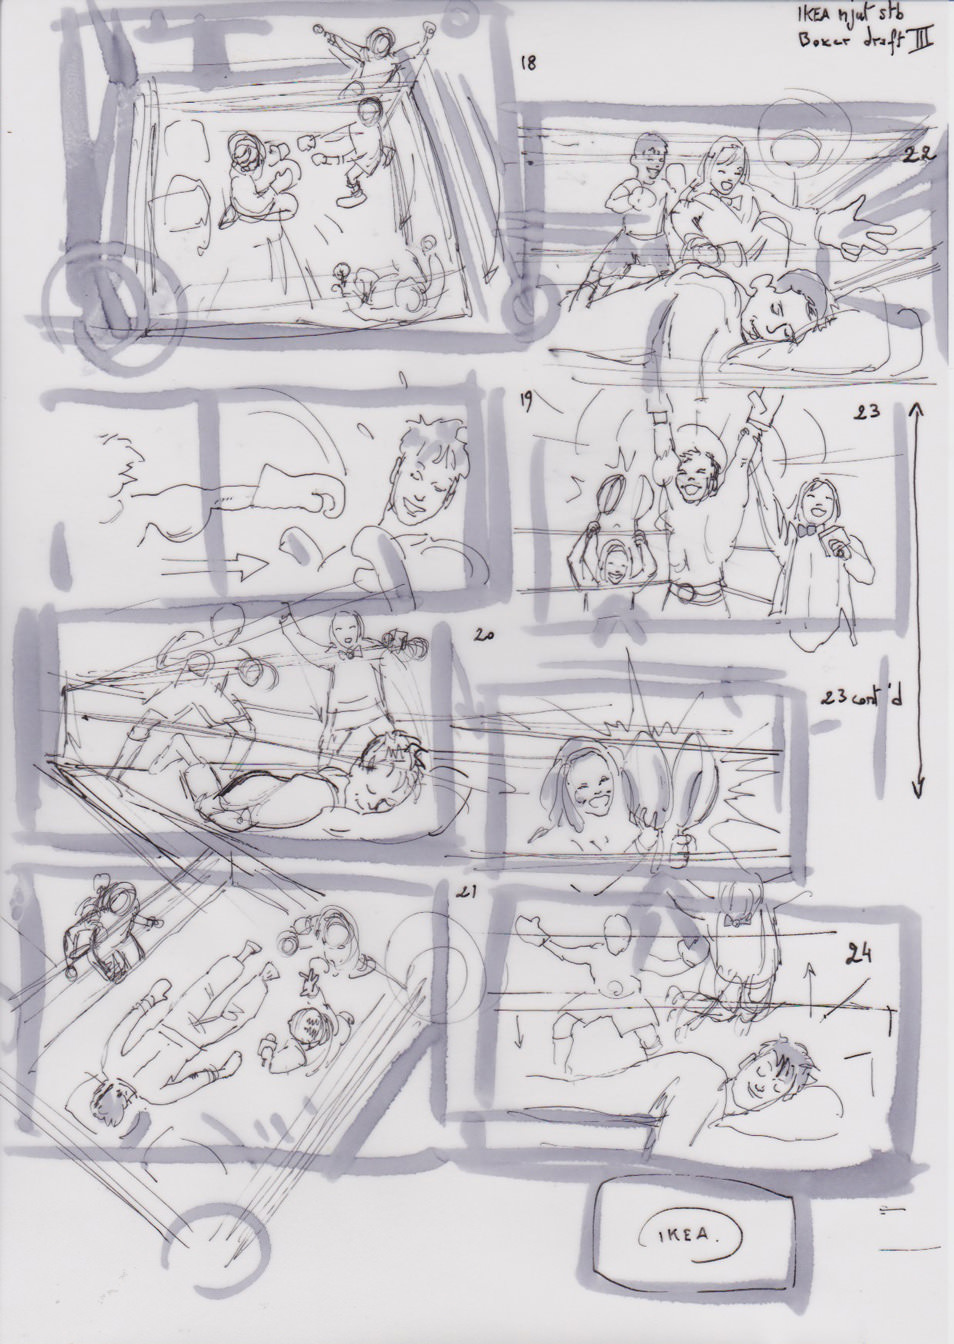 IKEA njut stb
Boxer draft III
18
22
19
23
20
23 cont'd
21
24
IKEA.